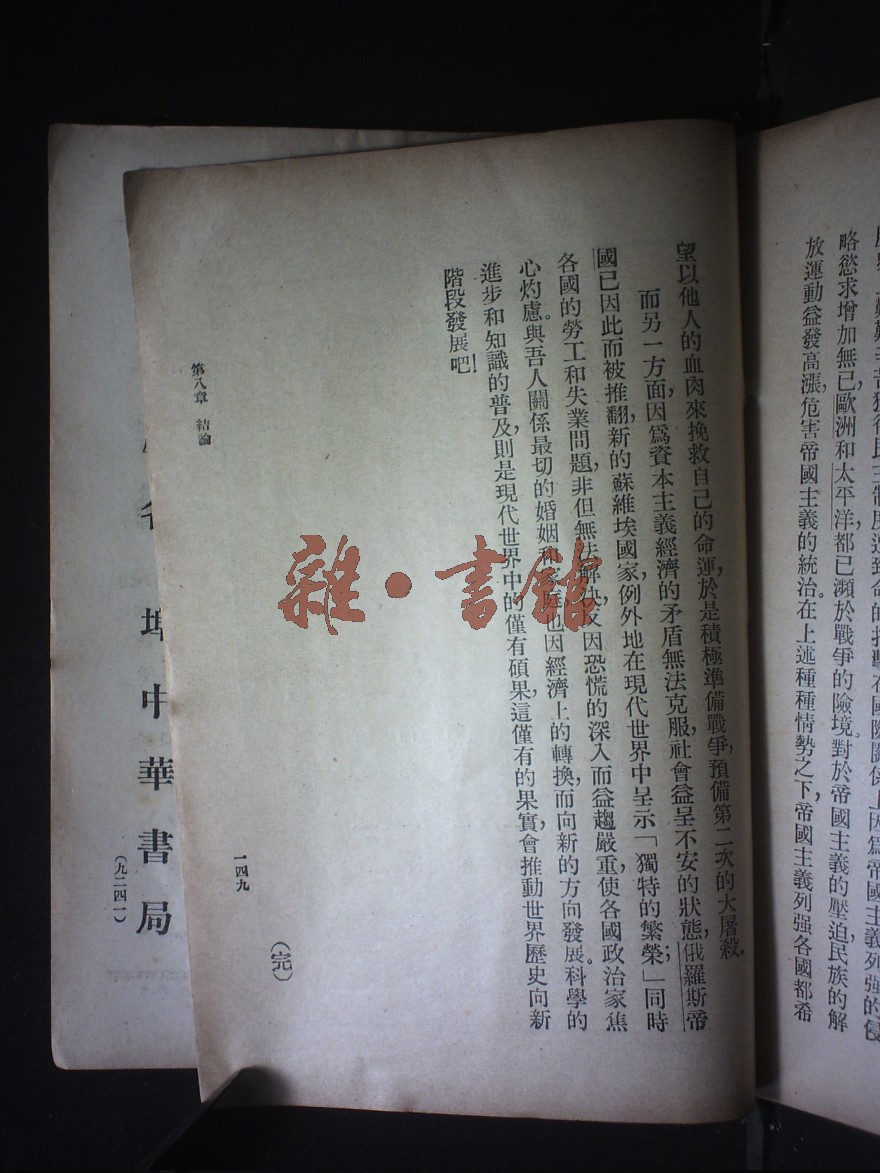 略慾求增加無已,歐洲和太平洋都已瀕於戰爭的險境。對於帝國主義的壓迫民族的解
放運動益發高漲,危害帝國主義的統治。在上述種種情勢之下,帝國主義列强各國都希
望以他人的血肉來挽救自己的命運,於是積極準備戰爭,預備第二次的大屠殺。
而另一方面,因爲資本主義經濟的矛盾無法克服,社會益呈不安的狀態,俄羅斯帝
國已因此而被推翻,新的蘇維埃國家,例外地在現代世界中呈示「獨特的繁榮」;同時
各國的勞工和失業問題,非但無法解決,又因恐慌的深入而益趨嚴重,使各國政治家焦
心灼慮。與吾人關係最切的婚姻和家庭,也因經濟上的轉換,而向新的方向發展。科學的
進步和知識的普及,則是現代世界中的僅有碩果,這僅有的果實,會推動世界歷史向新
階段發展吧!
(完)
第八章 結論
一四九
埠中華書局
(九二四一)
雜·書館